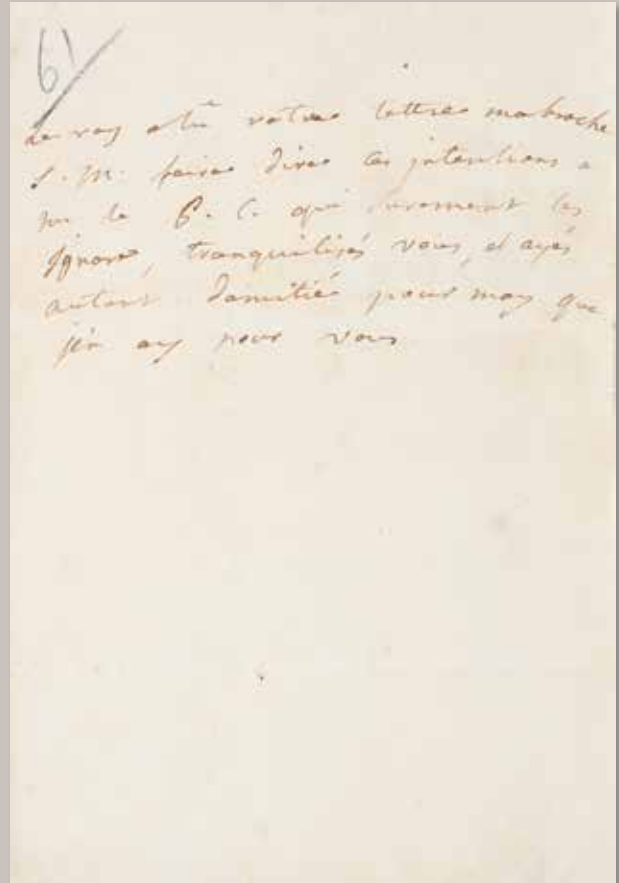 61
Le roy a lu votre lettre ma broche
S. M. faira dire ces jntentions a
mr le P. C. qui surement les
jgnore, tranquilisés vous, et ayés
autant damitié pour moy que
jen ay pour vous